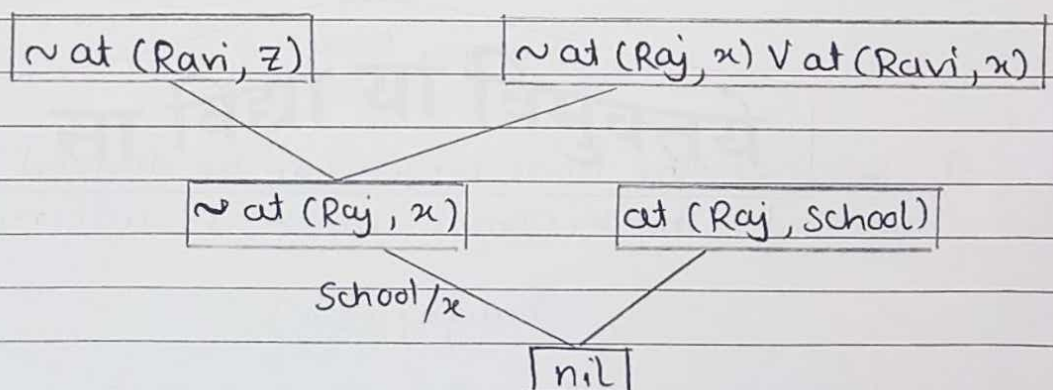 ~ at (Ravi, z) ~ at (Raj, x) V at (Ravi, x)
~ at (Raj, x) at (Raj, School)
School/x
nil